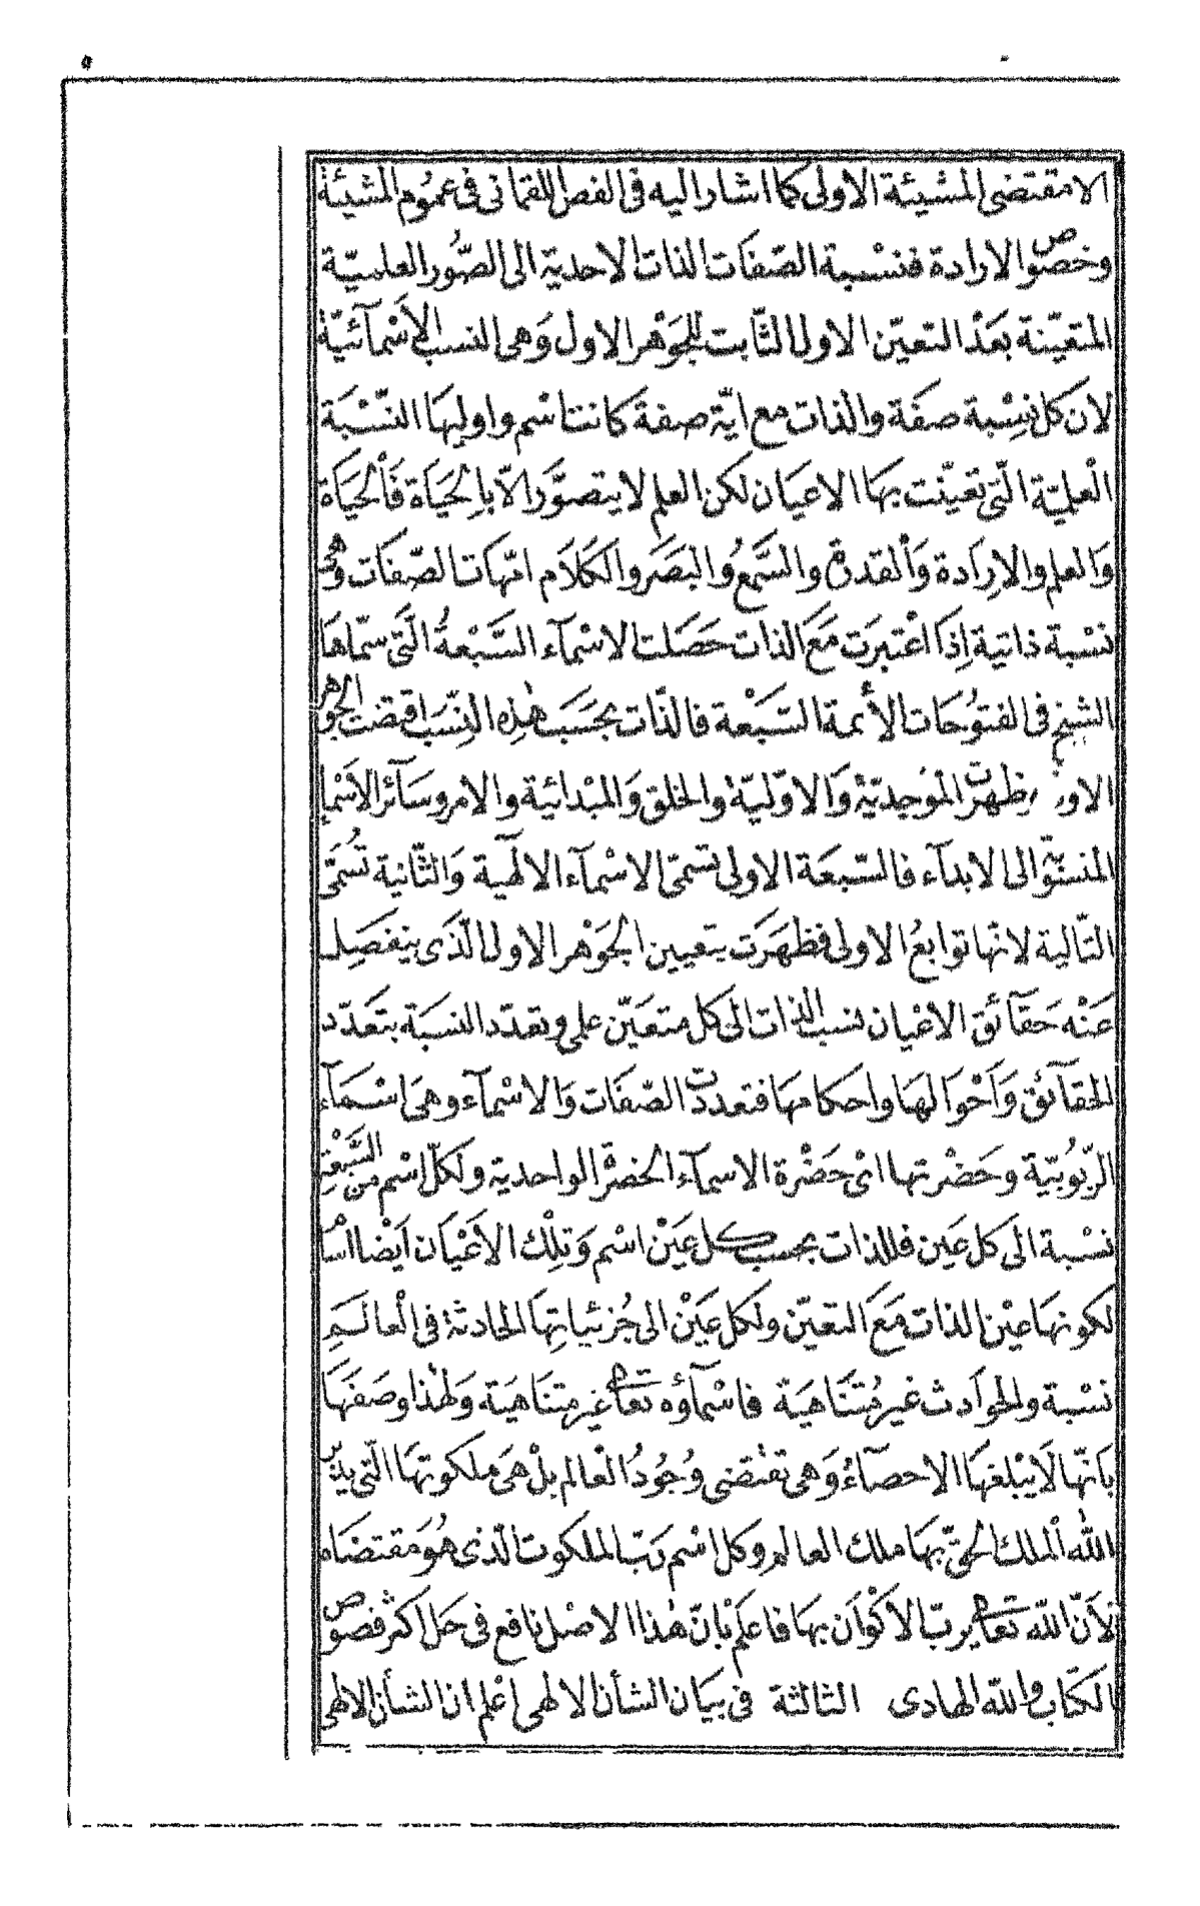 ٥
الا مقتضى المشيئة الاولى كما اشار اليه فى الفص اللقمانى فى عموم المشيئة
وخصوص الارادة فنسبة الصّفات الذات الاحدية الى الصُّور العلميّة
المتعيّنة بعْد التعيّن الاول الثّابت للجوْهر الاول وَهى النسب الأسْمآئيّة
لان كل نِسْبة صفَة والذات مع ايّة صفة كانت اسْم واوليها النّسْبَة
الْعلميّة الّتى تعيّنت بهَا الاعيان لكن العلم لا يتصوَّر الاّ بالحيَاة فَالْحيَاة
وَالعلم والارِادة وَالْقدرة والسَّمعُ والبَصَر والكَلاَم امّهات الصّفَات وهى
نسْبة ذاتية اِذَا اعْتبرَت مَعَ الذات حَصَلت الاسْمآء السَّبْعةُ الَّتى سمّاهَا
الشيخ فى الفتوُحَات الأئمة السَّبْعة فالذّات بحسَب هٰذِه النِّسَب اقتضت الجوهر
الاول وظهرت الموُجديّة وَالاوّليّة والخلق وَالمبْدائية والامر وسَآئر الاَسْما
المنسوبة الى الابدآء فالسّبعَة الاولى تسمّى الاسْمآء الالٓهية وَالثّانية تُسَمَّى
التّالية لانّها توابعُ الاولى فظهَرَت بتعيين الجَوْهر الاول الّذَى ينفصِل
عَنْه حَقآئق الاعْيان فنسب الذات الَى كل متعَيّن على وتعدّد النسبَة بتعَدّد
الحقآئق وَاَحْوالهَا واحكامهَا فتعددت الصّفَات وَالاسْمآء وهىَ اسْمَآء
الرّبُوبيّة وحَضْرتها اىْ حَضْرة الاسمآء الحضرْة الواحدية ولكلّ اسْم من السَّبْعَة
نسْبة الَى كل عَين فللذات بحسب كل عَيْن اسْم وَتلِْك الاَعْيَان اَيْضا اسْما
لكونهَا عيْن الذات مَعَ التعيّن ولكل عَيْن الى جُزئياتِهَا الحادثة فى الْعالَمِ
نسْبة والحواَدث غير مُتنَاهيَة فاسْمآؤه تعالى غير متنَاهيَة وَلهٰذا وصَفهَا
بانّهَا لاَيبْلغهَا الاحصآءُ وَهى تقتضى وُجُودُ الْعالم بلْ هىَ ملكوتهَا الّتى يدبّر
اللّٰه الْملك الحىّ بهَا ملك العالم وكل اسْم ربّ الملكوت الّذى هُوَ مقتضَاه
لاَنّ اللّه تعالى يربّ الاَكْواَن بهَا فاعلَمْ بانّ هٰذا الاصْل نافع فى حَل اكثر فصوص
الكتَاب واللّه الهادى الثالثة فى بيَان الشأن الالهى اعْلم ان الشأن الالهى